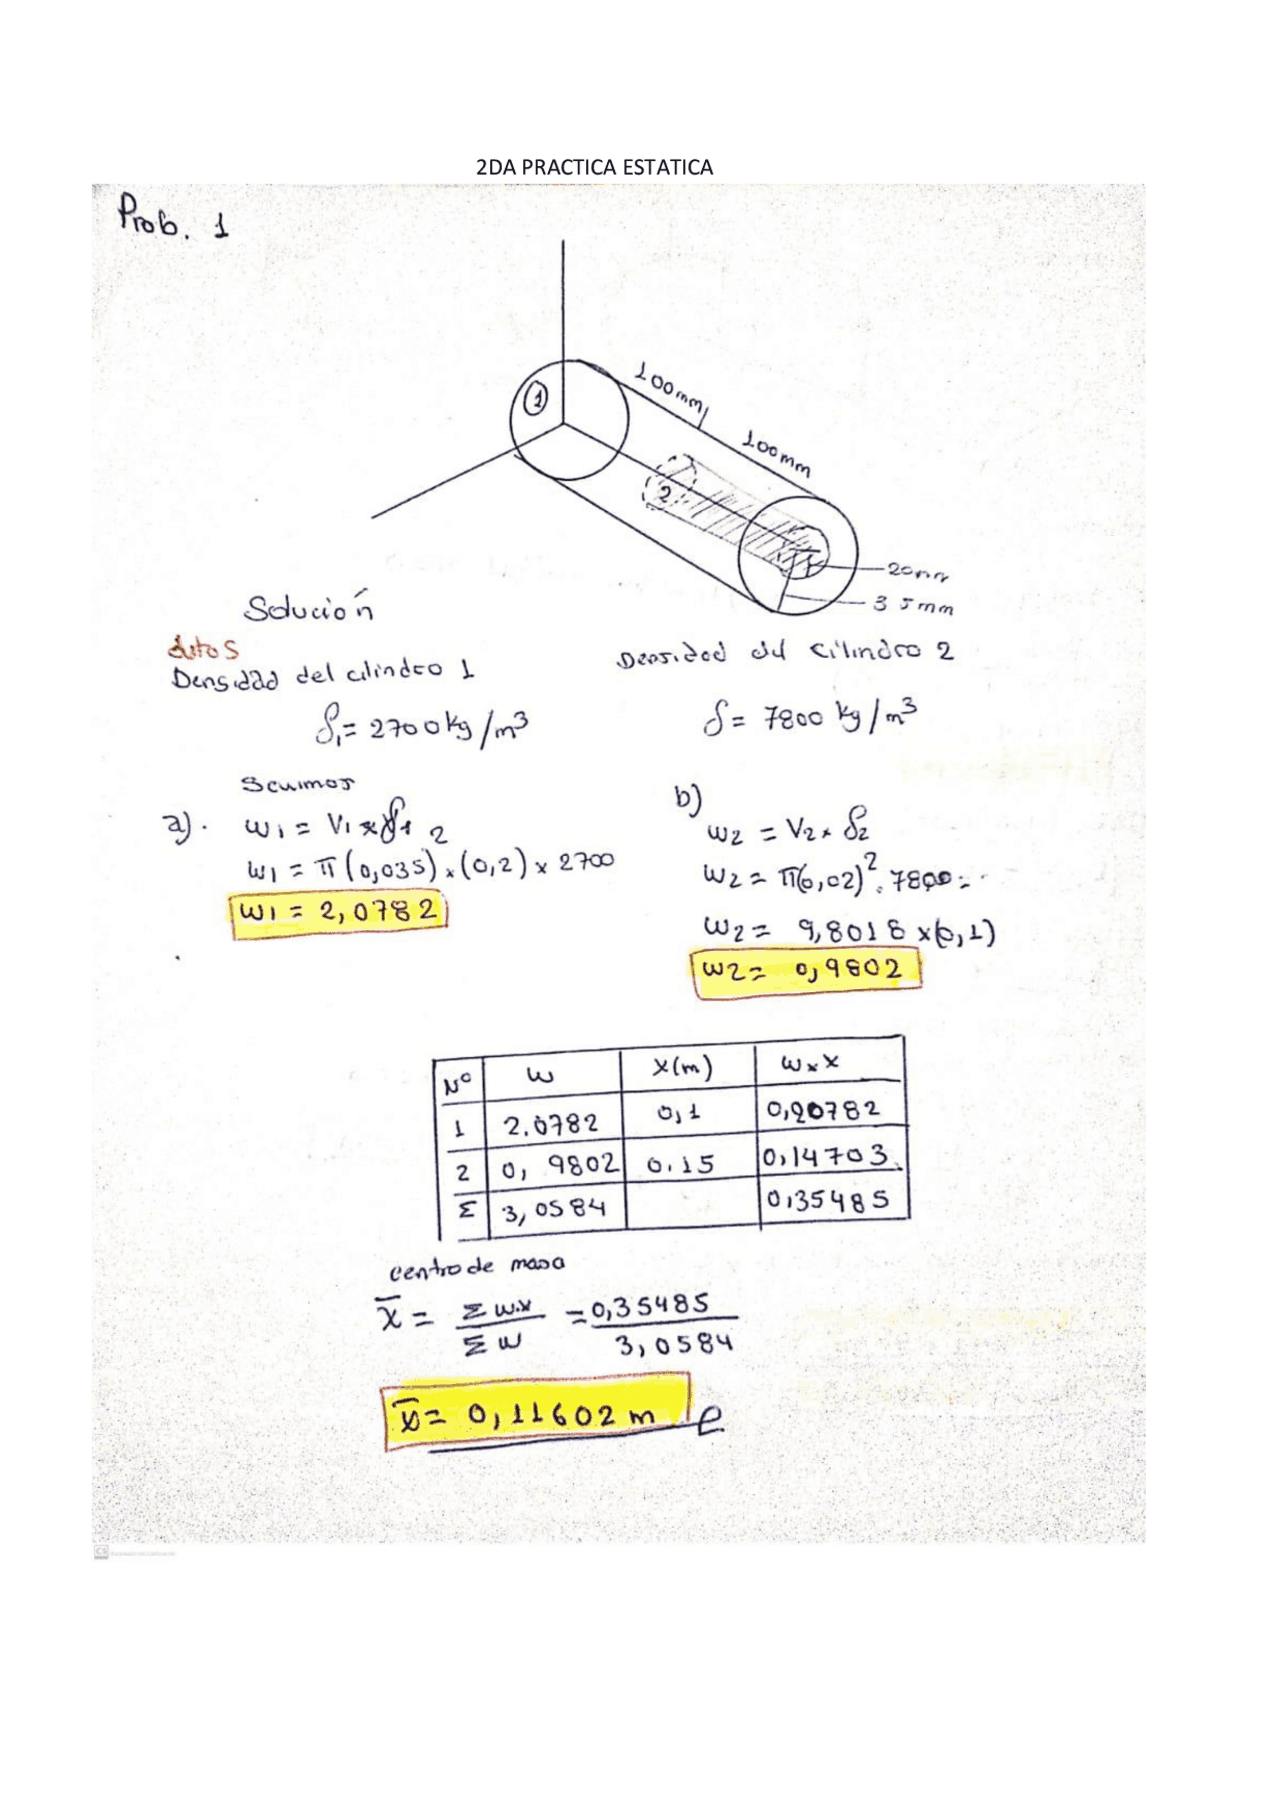 2DA PRACTICA ESTATICA
Prob. 1
1
100mm
100mm
2
20mm
35mm
Solución
datos
Densidad del cilindro 1
Densidad del cilindro 2
δ₁= 2700 kg/m³
δ= 7800 kg/m³
a).
w₁ = V₁ x δ₁
w₁ = π (0,035)² x (0,2) x 2700
w₁ = 2,0782
b)
w2 = V2 x δ2
w2 = π(0,02)² . 7800 =
w2 = 9,8018 x(0,1)
w2 = 0,9802
Nº w x(m) w x x
1 2.0782 0,1 0,20782
2 0,9802 0.15 0,14703
Σ 3,0584 0,35485
centro de masa
x̄ = Σ w.x / Σ w = 0,35485 / 3,0584
x̄ = 0,11602 m
CS